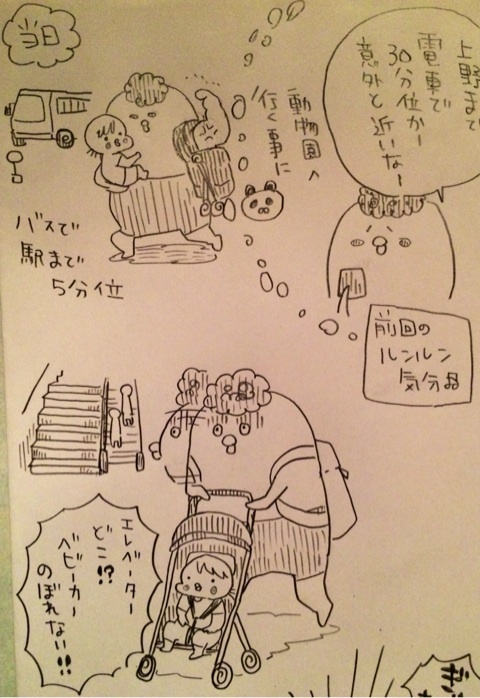 上野まで
電車で
30分位かー
意外と近いなー
動物園へ
行く事に
前回の
ルンルン
気分
当日
バスで
駅まで
5分位
エレベーター
どこ!?
ベビーカー
のぼれない!!